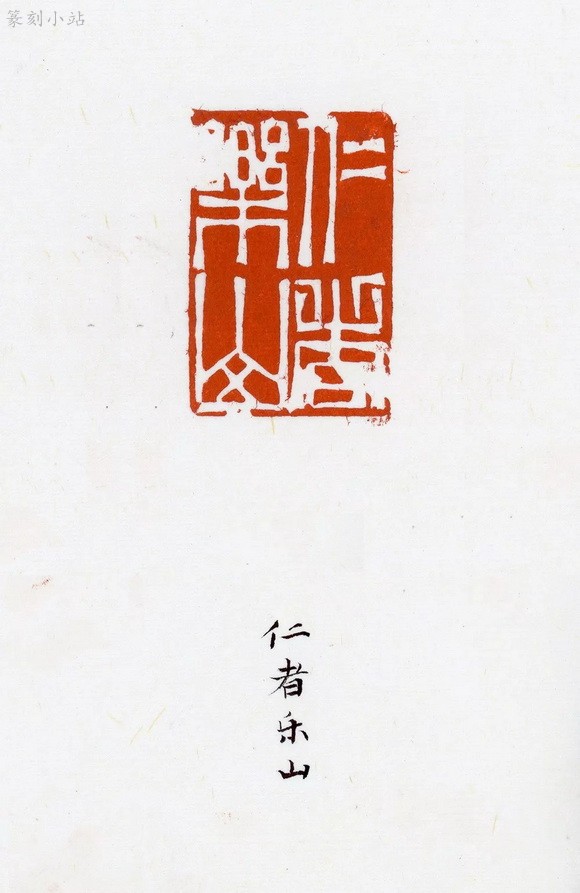 篆刻小站
仁者
樂山
仁者乐山